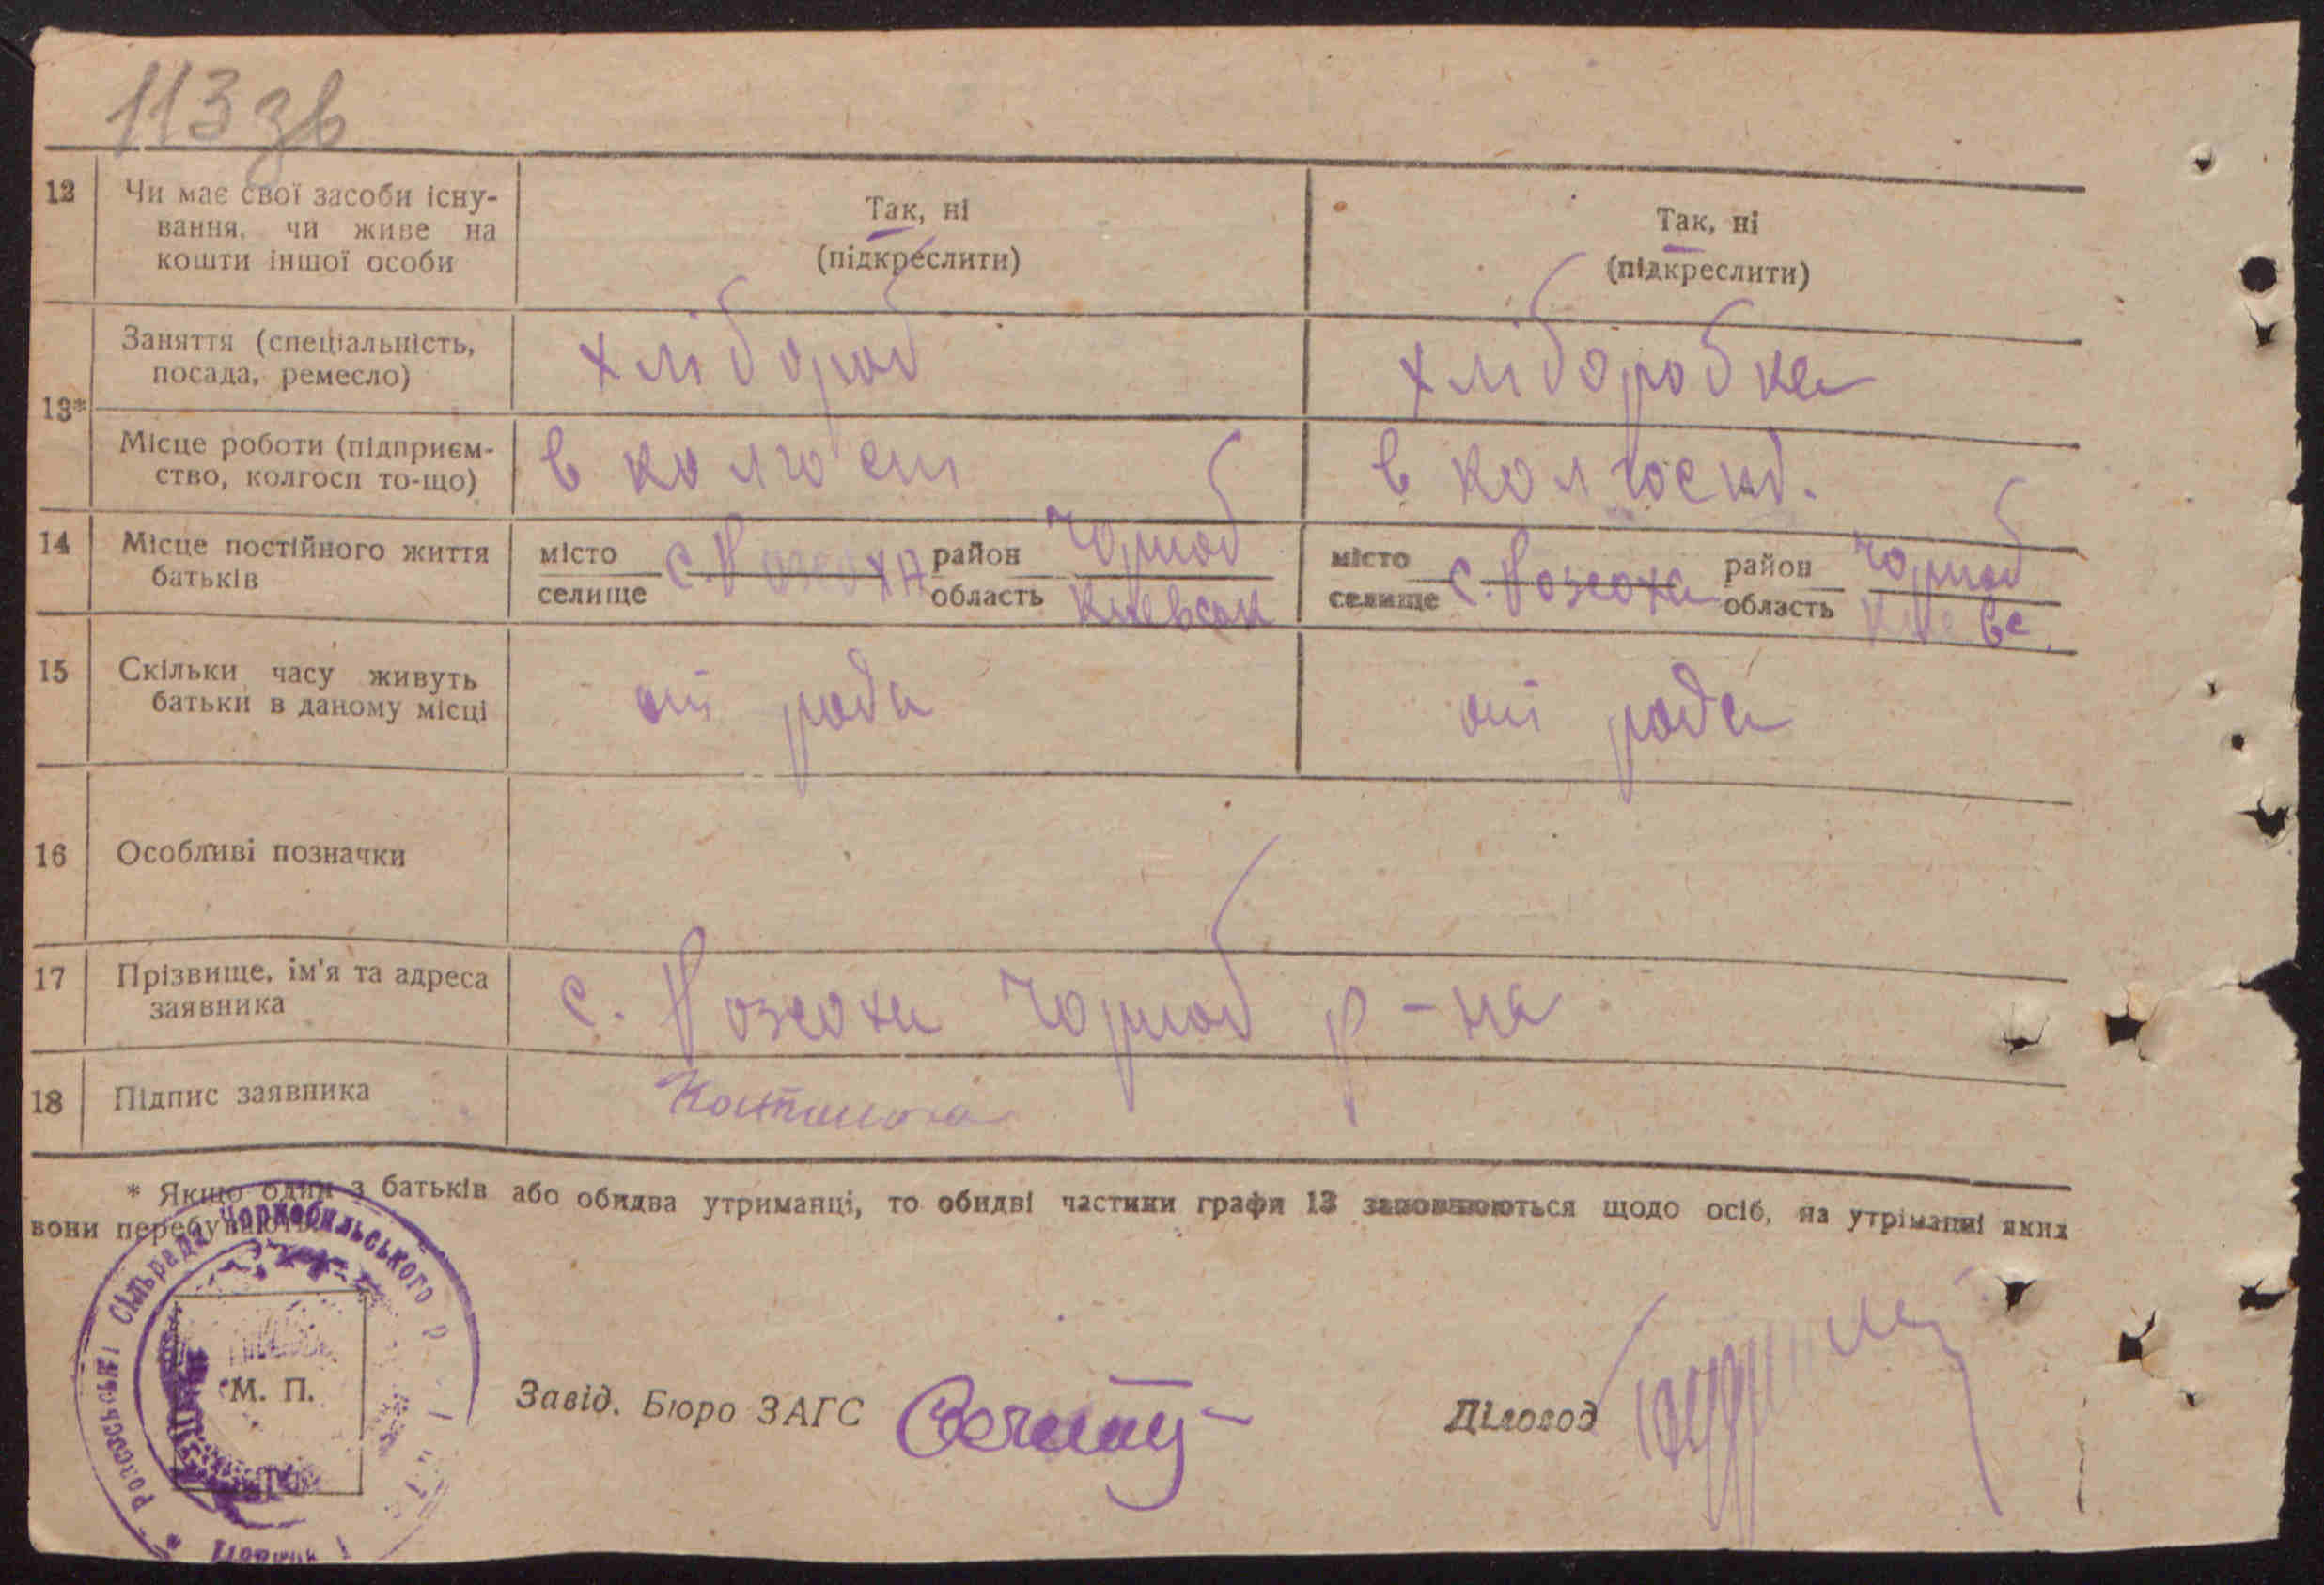 113 зв
12 Чи має свої засоби існу-
вання, чи живе на
кошти іншої особи
Так, ні
(підкреслити)
Так, ні
(підкреслити)
13*
Заняття (спеціальність,
посада, ремесло)
хлібороб
хліборобка
Місце роботи (підприєм-
ство, колгосп то-що)
в колгосп
в колгосп.
14 Місце постійного життя
батьків
місто
селище
с.
район Чорноб
область Киевськ
місто
селище
с.
район Чорноб
область Киевс.
15 Скільки часу живуть
батьки в даному місці
от рода
от рода
16 Особливі позначки
17 Прізвище, ім'я та адреса
заявника
с. Чорноб р-на
18 Підпис заявника
* Якщо один з батьків або обидва утриманці, то обидві частини графи 13 заповнюються щодо осіб, на утріманні яких
вони перебувають.
Сільради Чорнобильського р
М. П.
Завід. Бюро ЗАГС
Діловод